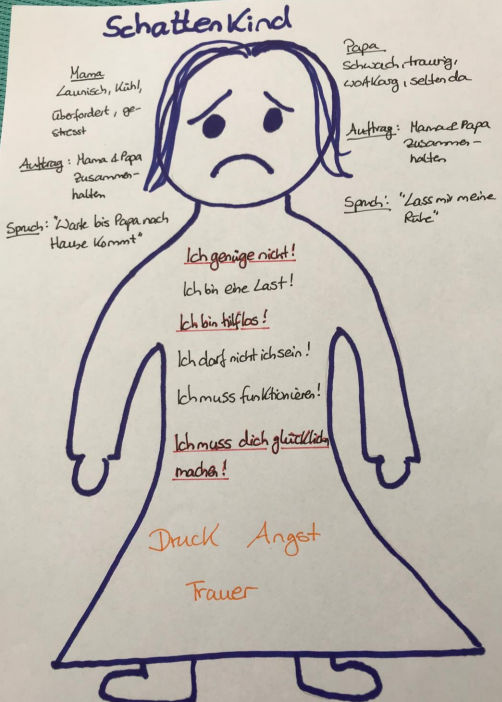 Schattenkind
Mama
Launisch, Kühl,
überfordert, ge-
stresst
Auftrag: Mama & Papa
zusammen-
halten
Spruch: "Warte bis Papa nach
Hause kommt"
Papa
Schwach, traurig,
wortkarg, selten da
Auftrag: Mama & Papa
zusammen-
halten
Spruch: "Lass mir meine
Ruhe"
Ich genüge nicht!
Ich bin eine Last!
Ich bin hilflos!
Ich darf nicht ich sein!
Ich muss funktionieren!
Ich muss dich glücklich
machen!
Druck Angst
Trauer